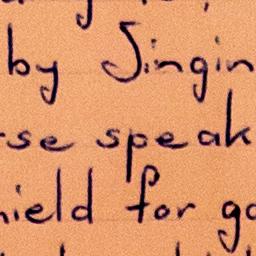 by Singin
se speak
ield for go